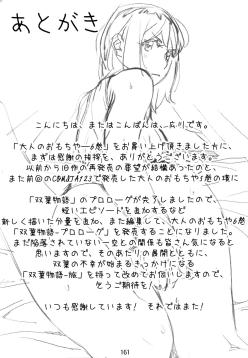 あとがき
こんにちは、またはこんばんは、広川です。
「大人のおもちゃ6巻」をお買い上げ頂きました方に、
まずは感謝の挨拶を、ありがとうございます。
以前から旧作の再発売の要望が結構あったのと、
また前回のCOMITA123で発売した大人のおもちゃ5巻の頃に
「双葉物語」のプロローグが完了しましたので、
短いエピソードを追加するなど
新しく描いた分量を追加、また編集して、大人のおもちゃ6巻
「双葉物語-プロローグ」を発売することになりました。
まだ陥落されていない一幸との関係も皆さん気になると
思いますので、そのあたりの展開とともに、
双葉の不幸が始まるきっかけになる
「双葉物語-旅」を持って改めてお伺いしますので、
ぜひご期待を!
いつも感謝しています! それではまた!
161